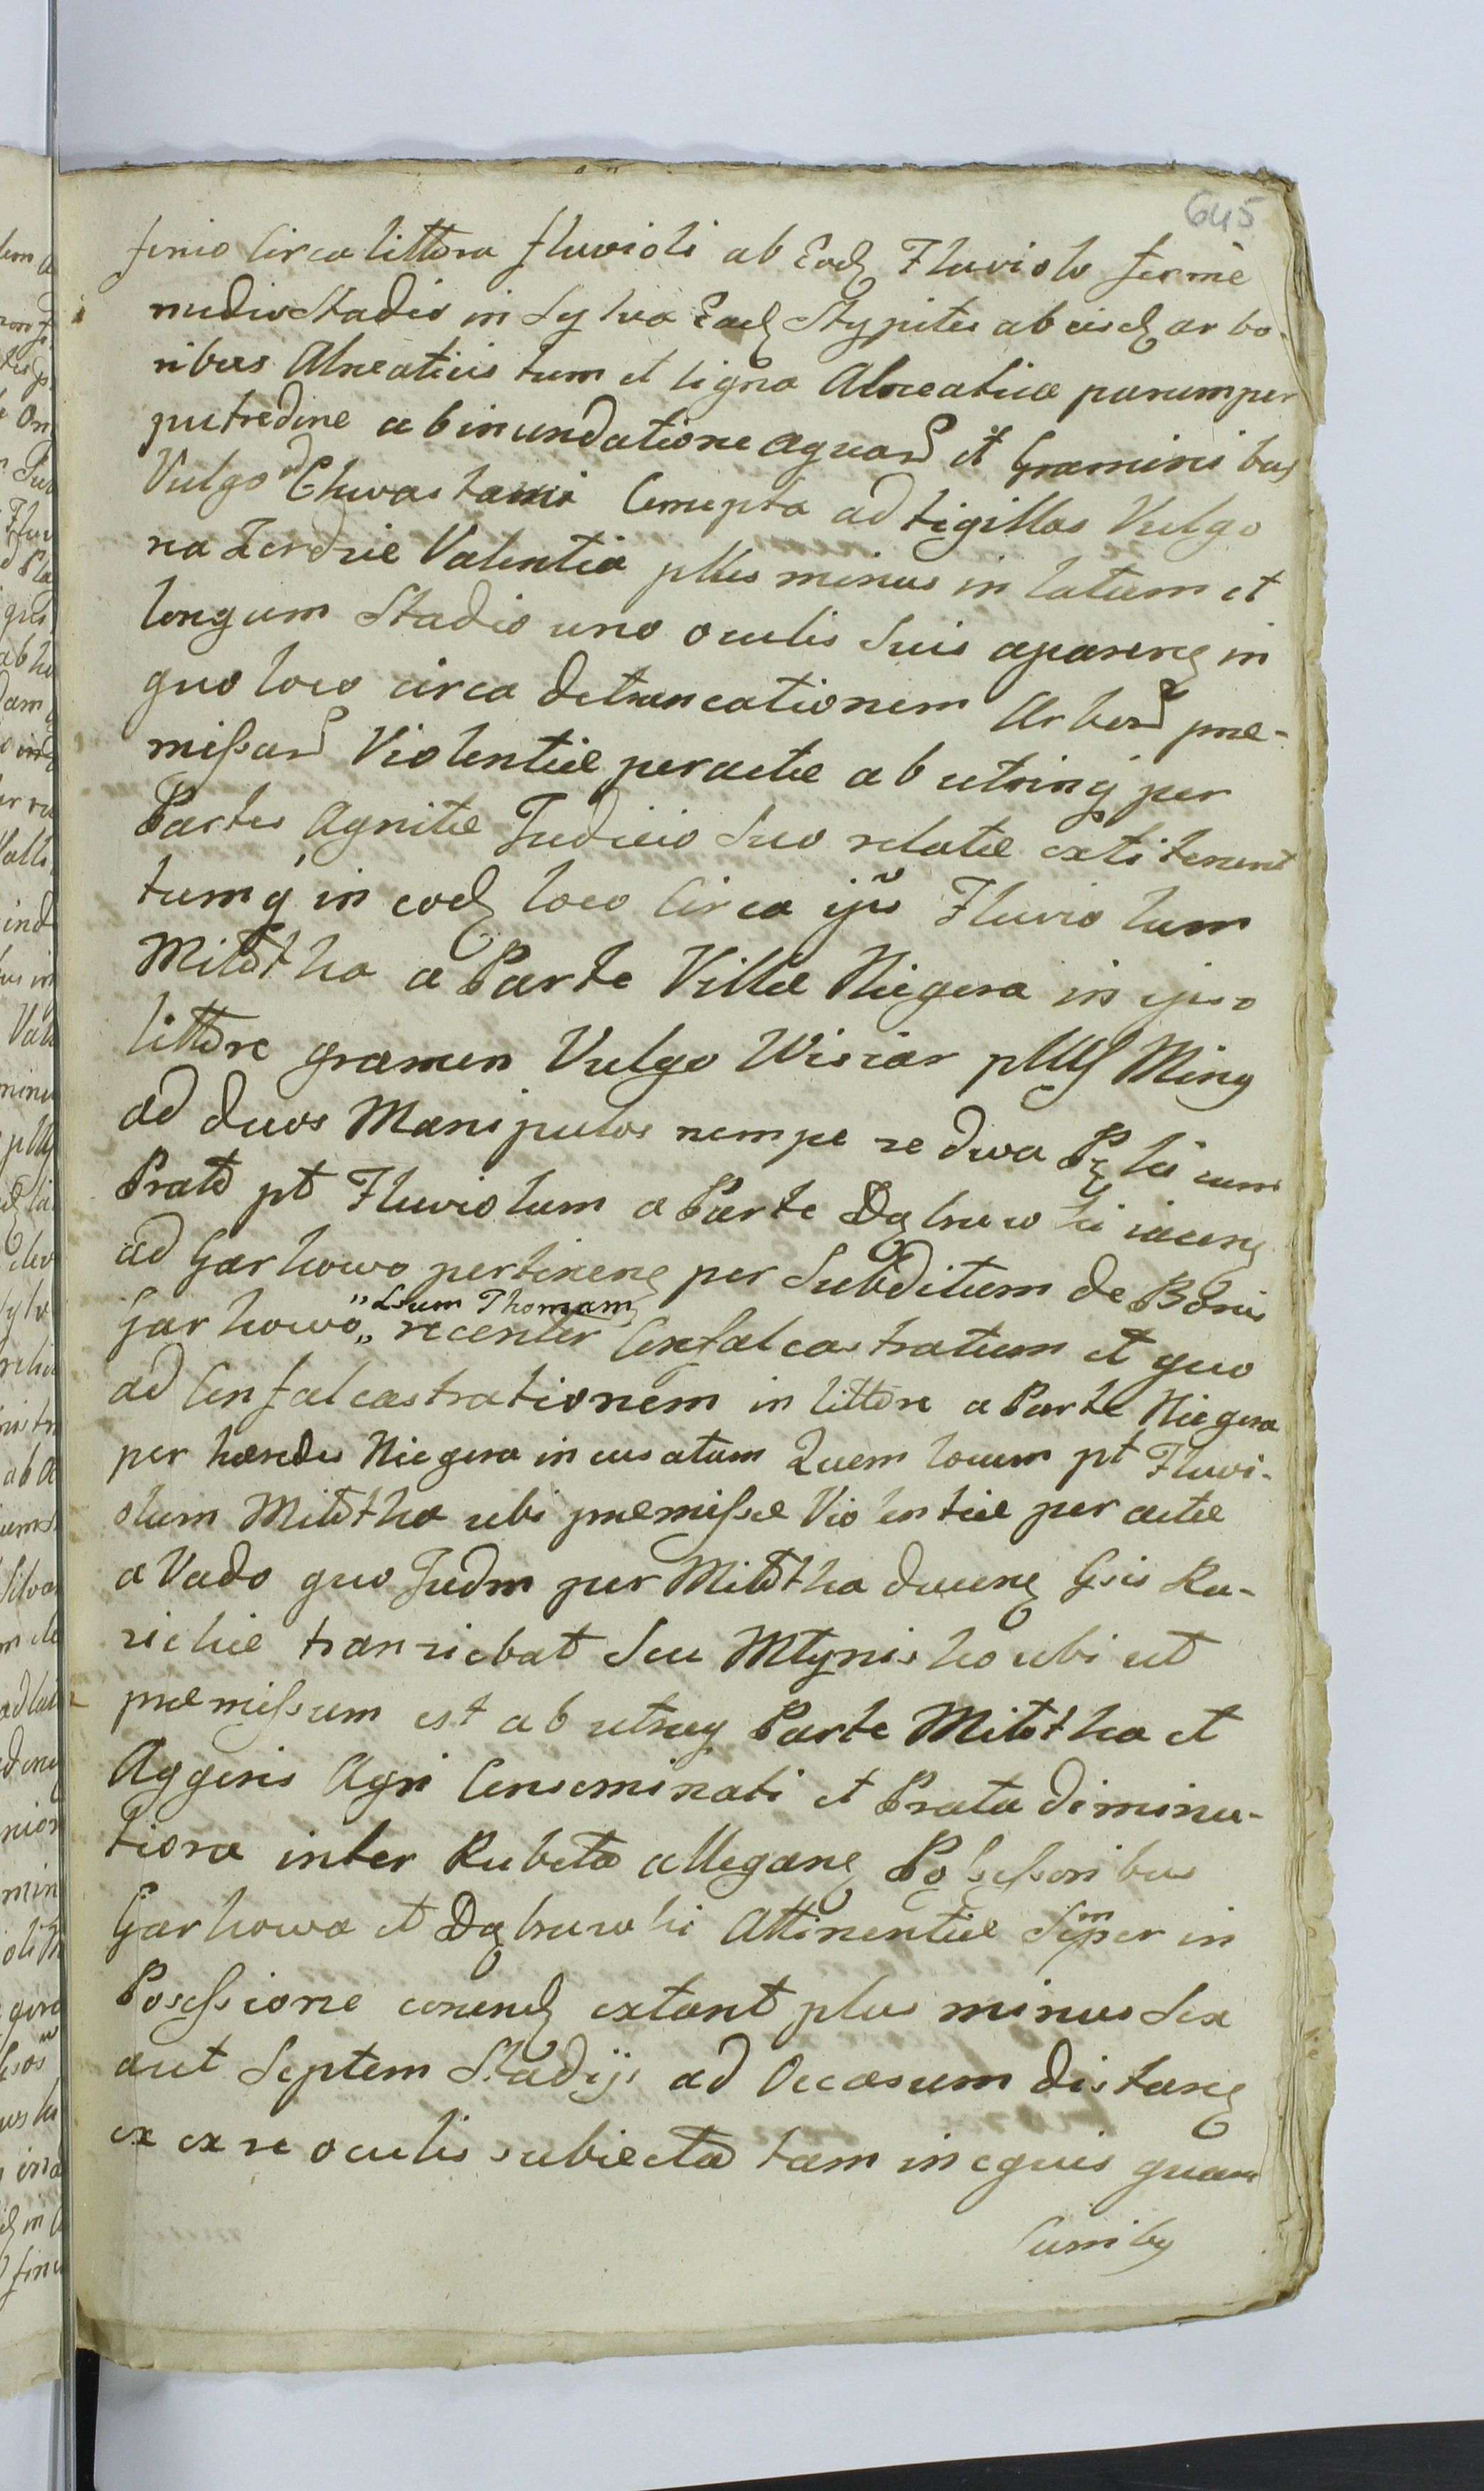 645
finio Circa littora fluvioli ab Eodȩ Fluviolo fermè
medio Stadio in Sylva Eadȩ Stypites ab eisdȩ arbo-
ribus Alneaticis tum et ligna Alneaticæ parumper
putredine ab inundatione aquarȩ et Graminibus
Vulgo Chwastami Correpta ad tigillas Vulgo
na Zerdzie Valentia plus minus in latum et
longum Stadio uno oculis Suis aparenȩ in
quo loco circa detruncationem Arborȩ præ-
missarȩ Violentiæ peractæ ab utrinq per
Partes Agnitæ Judicio Suo relatæ extiterunt
tumq in eodȩ loco Circa ipsũ Fluviolum
Mitotka a Parte Villæ Niegera in ipso
littore gramen Vulgo Wisiar plus Minꝯ
ad duos Manipulos nempe ze dwa Pȩki cum
Prato pt Fluviolum a Parte Dąbrowki iacenȩ
ad Garkowo pertinenȩ per Subditum de Bonis
Garkowo „recenter Confalcastratum et quo
"Suum Thomam
ad Confalcastrationem in littore a Parte Niegera
per hæredes Niegera incusatam Quem locum pt Fluvi-
olum Mitotka ubi præmissæ Violentiæ peractæ
a Vado quo Judm per Mitotka ducenȩ Gsis Ra-
zichie transiebat Seu Mtynisko ubi ut
præmissum est ab utraq Parte Mitotka et
Aggeris Agri Conseminati et Prata diminu-
tiora inter Rubeta alleganȩ Possessoribus
Garkowa et Dąbrowki Attinentiæ Semper in
Posessione eorundȩ extant plus minus Sex
aut Septem Stadijs ad Occasum distanȩ
ex ex re oculis subiecta tam in equis quam
Curriby